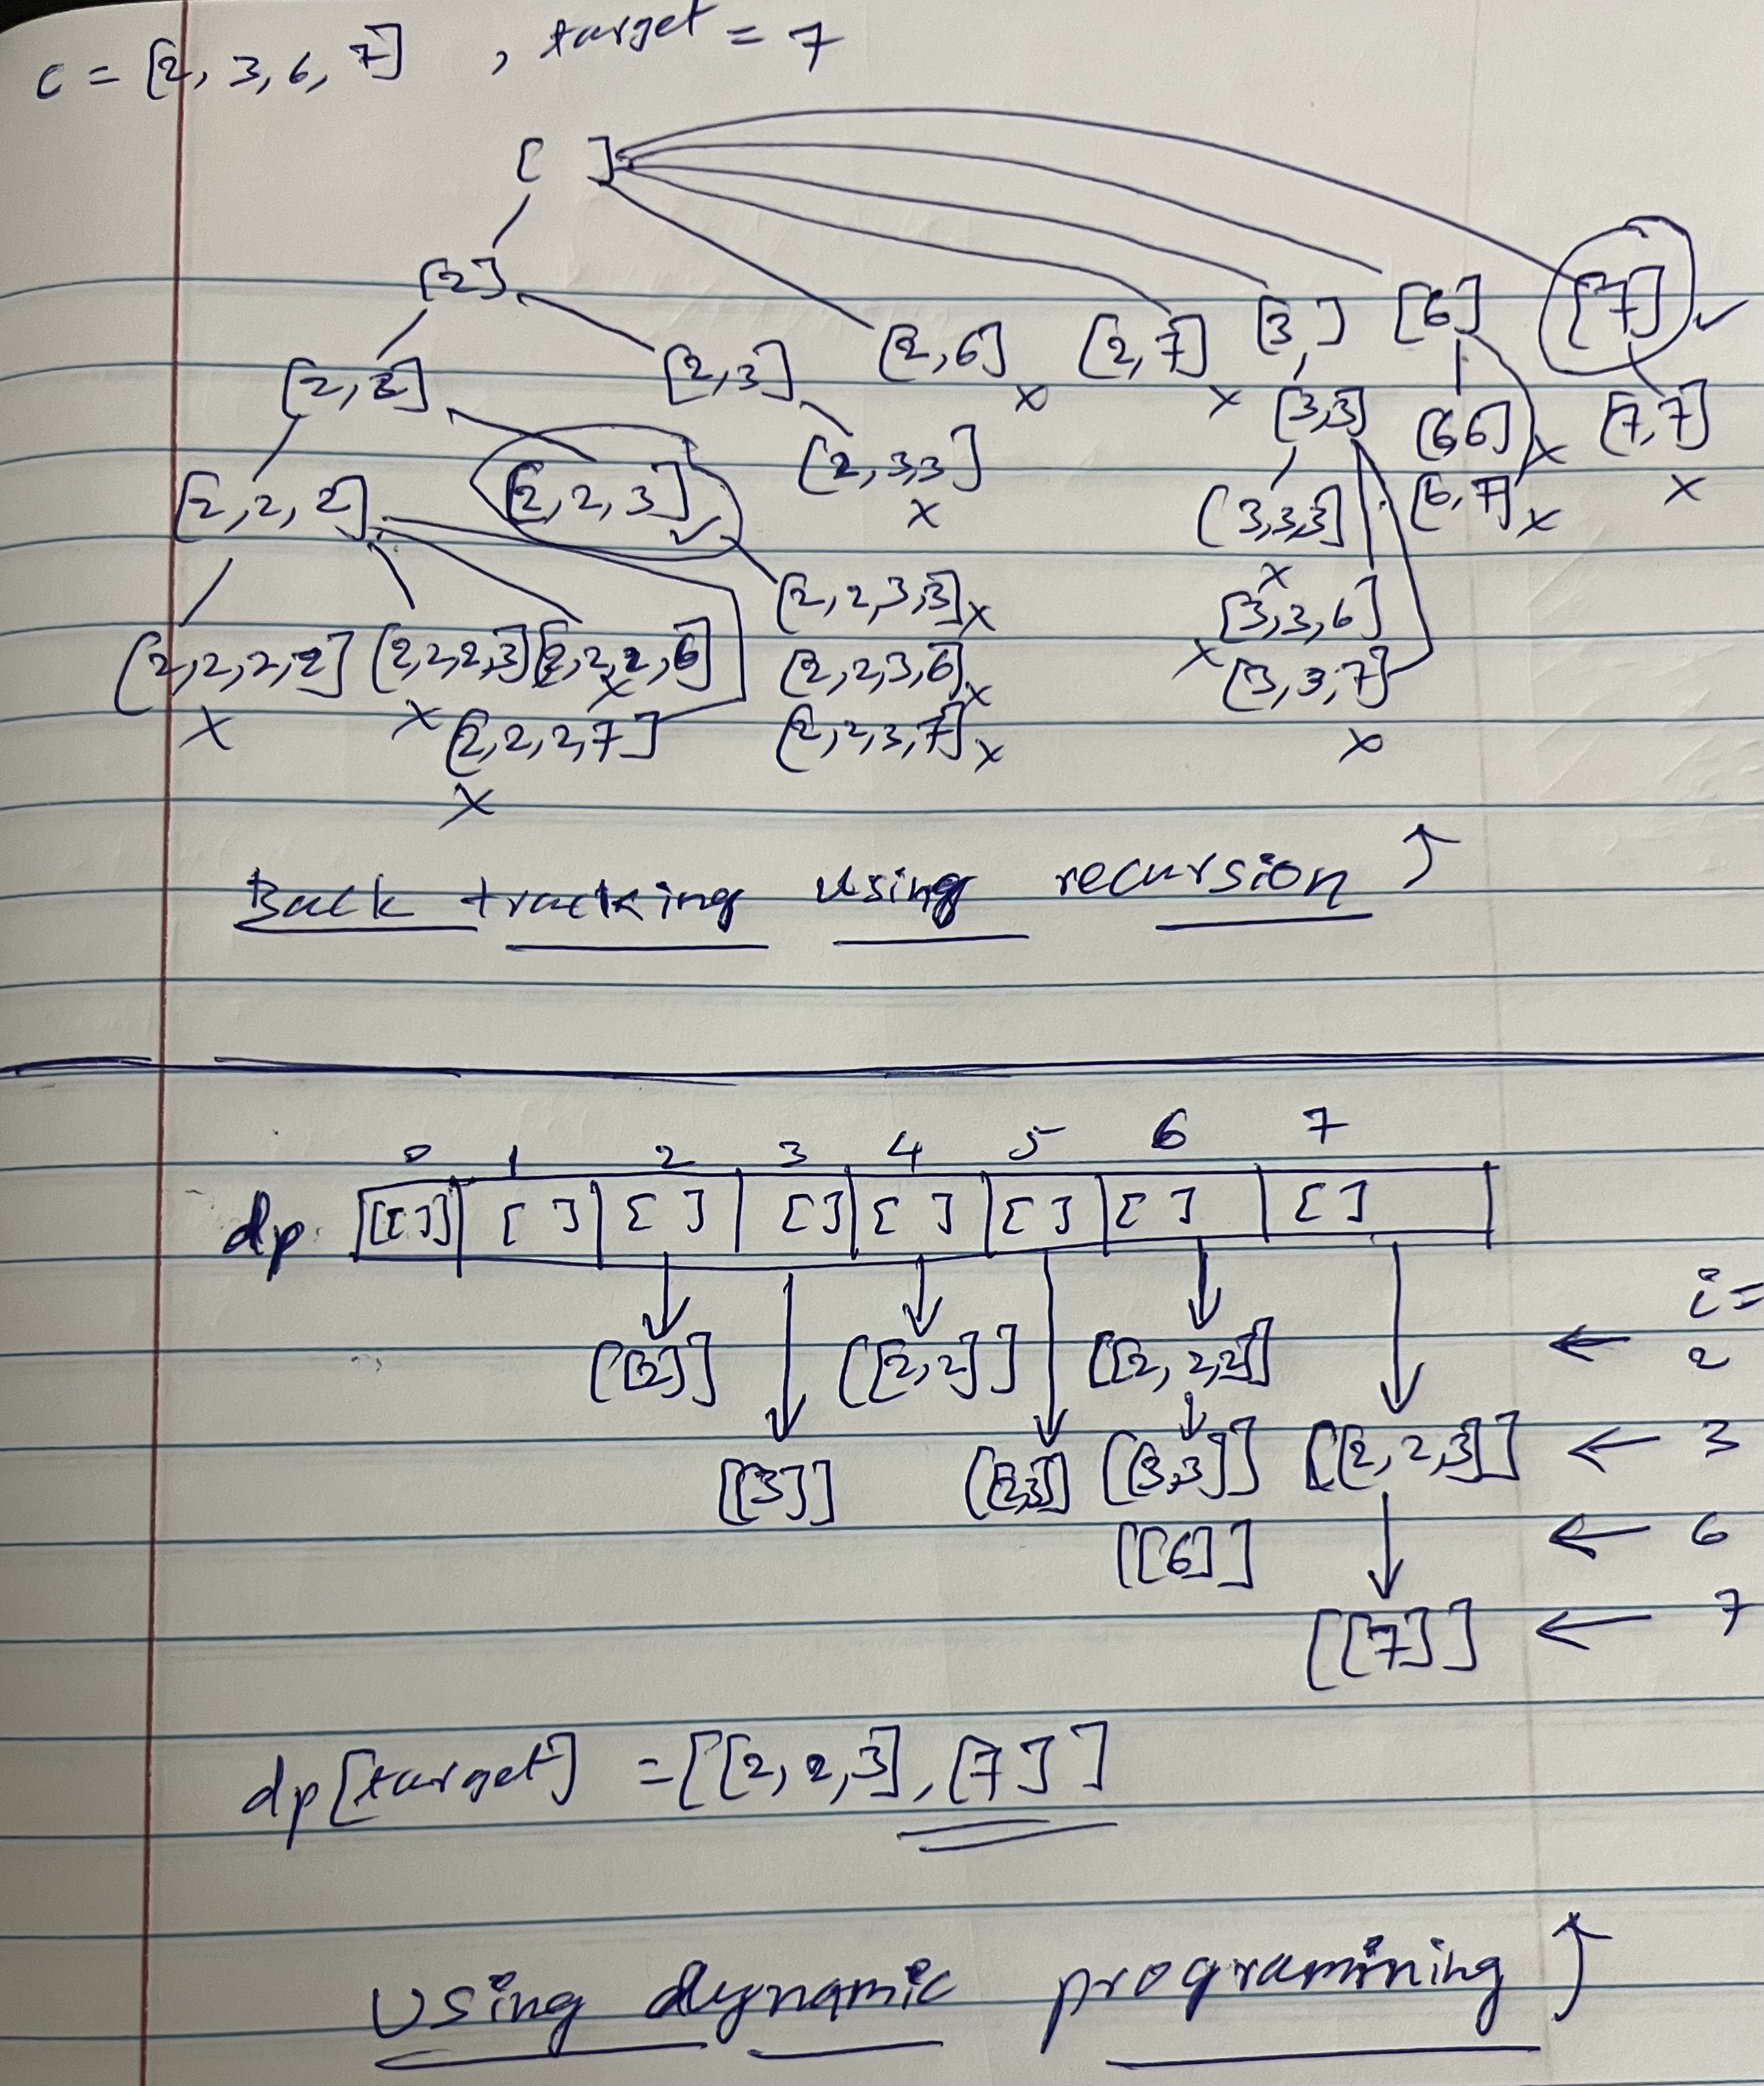 c = [2, 3, 6, 7] , target = 7
[ ]
[2]
[2,6] x [2,7] x [3, ] [6] [7] ✓
[2,2] [2,3] [3,3] [6,6] x [7,7] x
[2,2,2] [2,2,3] ✓ [2,3,3] x [3,3,3] x [6,7] x
[2,2,3,3] x [3,3,6] x
[2,2,2,2] x [2,2,2,3] x [2,2,2,6] x [2,2,3,6] x [3,3,7] x
[2,2,2,7] x [2,2,3,7] x
Back tracking using recursion ↑
0 1 2 3 4 5 6 7
dp [[]] [ ] [ ] [ ] [ ] [ ] [ ] [ ]
i=
[[2]] [[2,2]] [[2,2,2]] ← 2
[[3]] [[2,3]] [[3,3]] [[2,2,3]] ← 3
[[6]] ← 6
[[7]] ← 7
dp[target] = [[2,2,3], [7]]
Using dynamic programining ↑